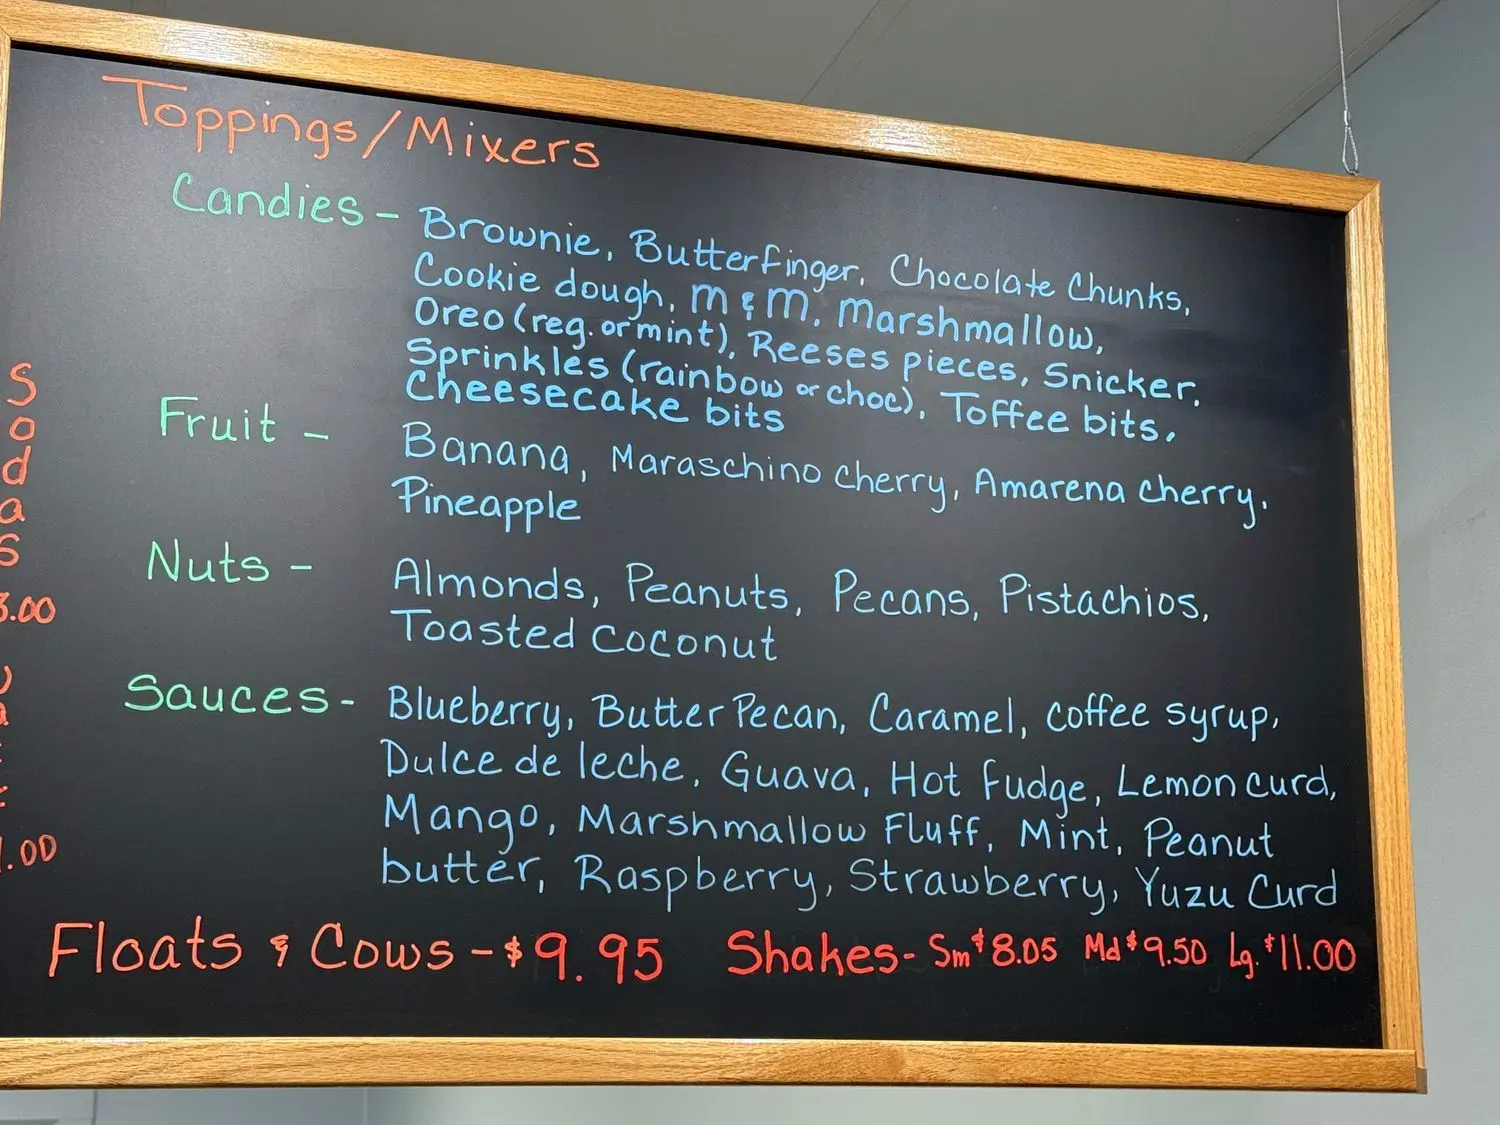 Toppings/Mixers
Candies - Brownie, Butterfinger, Chocolate Chunks,
Cookie dough, M & M, Marshmallow,
Oreo (reg. or mint), Reeses pieces, Snicker,
Sprinkles (rainbow or choc), Toffee bits,
Cheesecake bits
Fruit - Banana, Maraschino cherry, Amarena cherry,
Pineapple
Nuts - Almonds, Peanuts, Pecans, Pistachios,
Toasted Coconut
Sauces - Blueberry, Butter Pecan, Caramel, coffee syrup,
Dulce de leche, Guava, Hot fudge, Lemon curd,
Mango, Marshmallow Fluff, Mint, Peanut
butter, Raspberry, Strawberry, Yuzu Curd
Floats & Cows - $9.95 Shakes - Sm $8.05 Md $9.50 Lg. $11.00